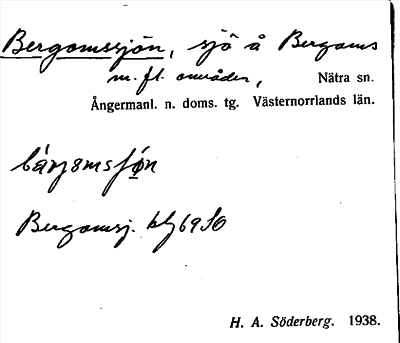 Bergomssjön, sjö å Bergoms
m. fl. områden, Nätra sn.
Ångermanl. n. doms. tg. Västernorrlands län.
Bergomsj.
H. A. Söderberg. 1938.